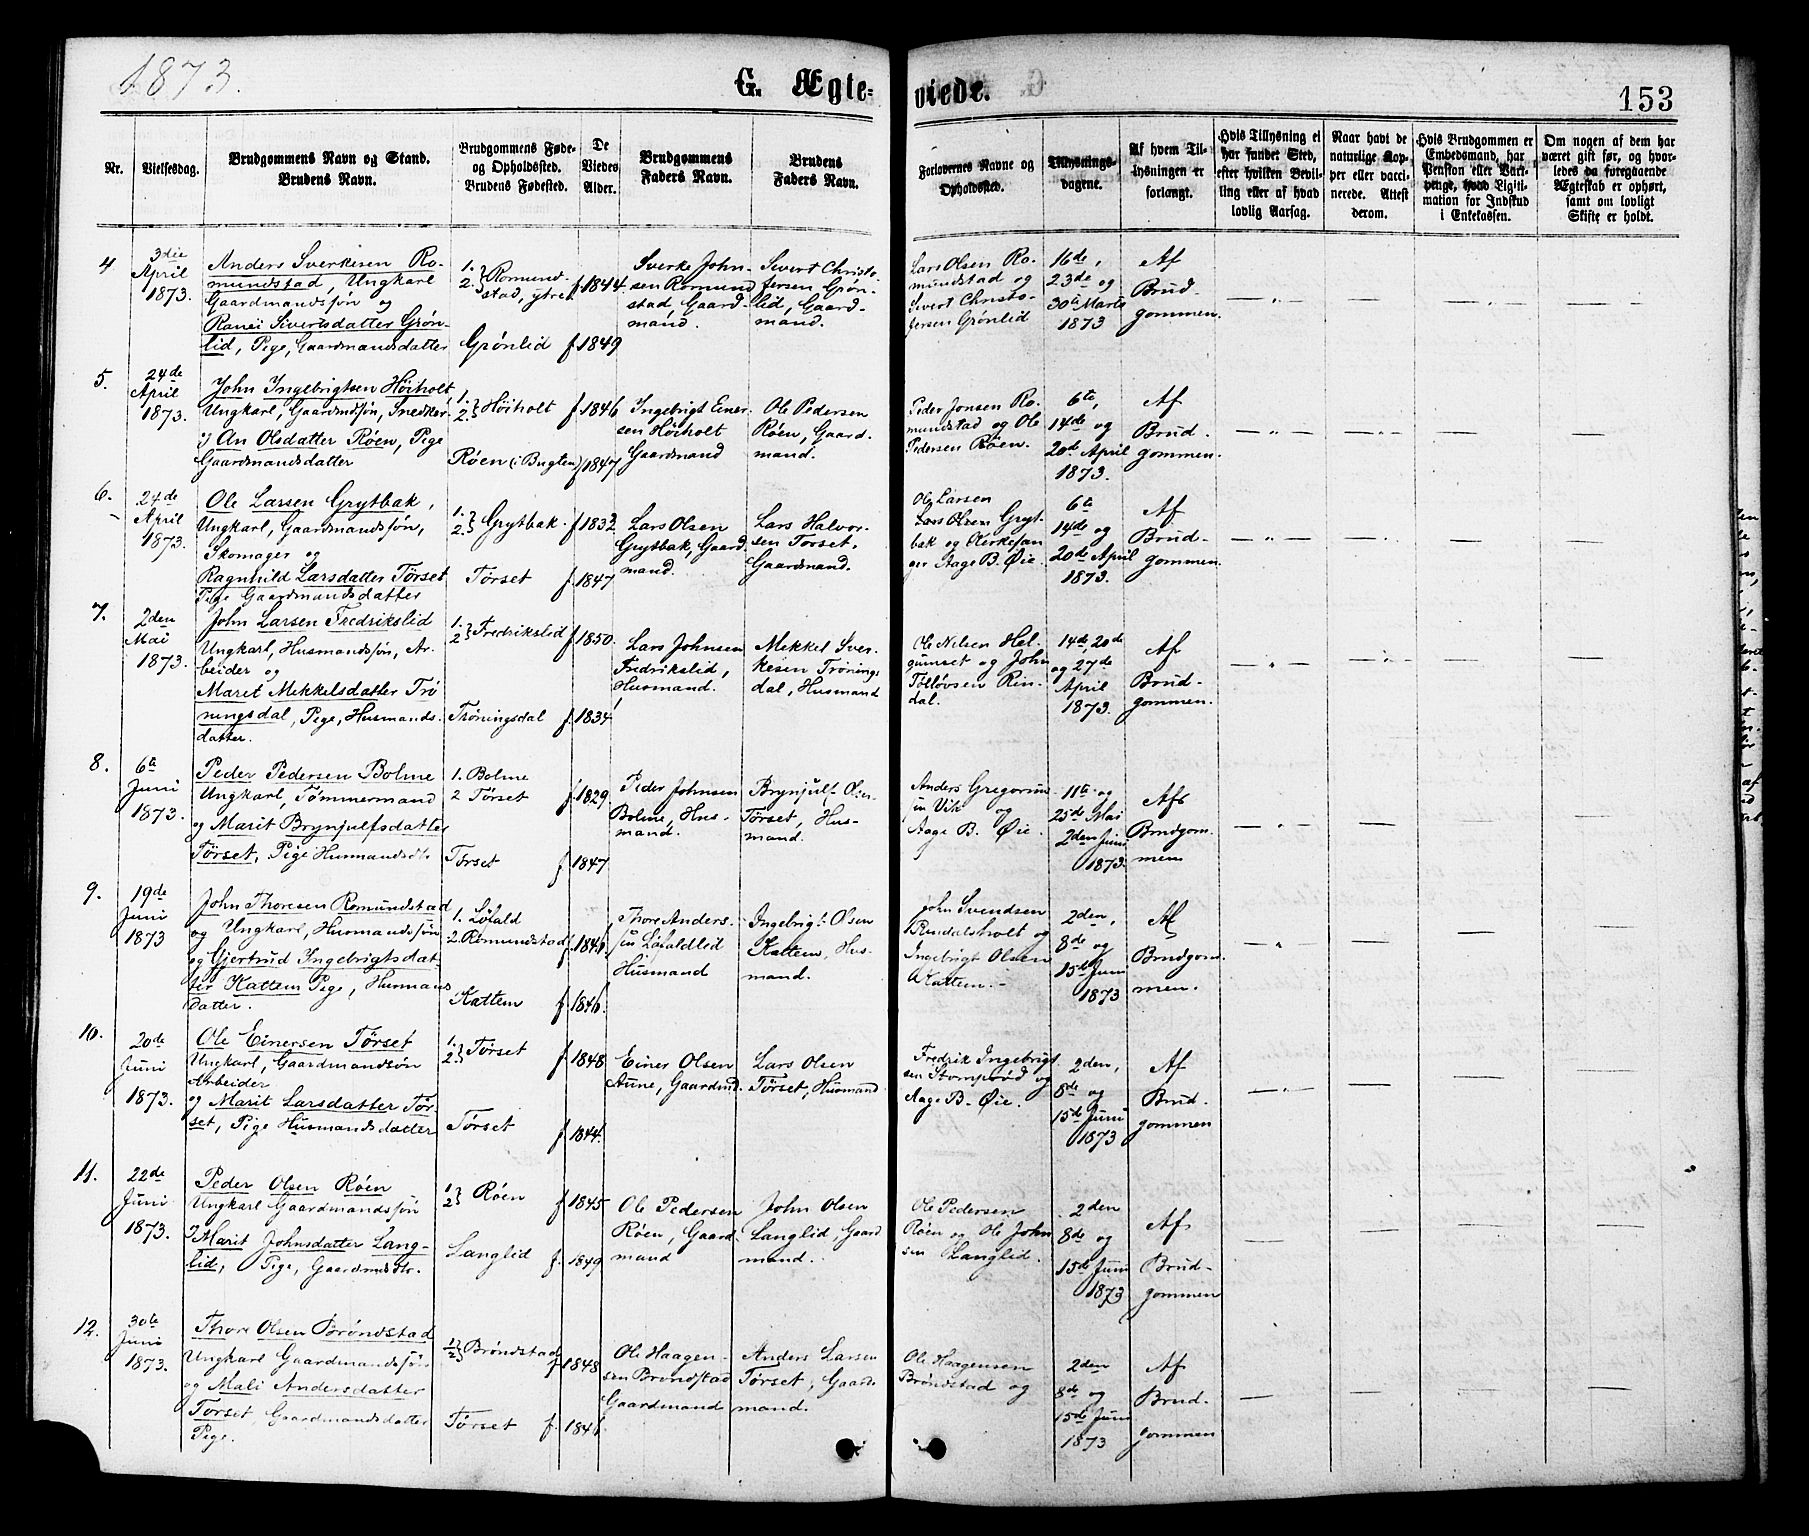 1873.
G. Ægte-
viede.
153
Nr.
Vielsesdag.
Brudgommens Navn og Stand.
Brudens Navn.
Brudgommens Føde-
og Opholdssted.
Brudens Fødested.
De
Viedes
Alder.
Brudgommens
Faders Navn.
Brudens
Faders Navn.
Forlovernes Navne og
Opholdssted.
Tillysnings-
dagene.
Af hvem Til-
lysningen er
forlangt.
Hvis Tillysning ei
har fundet Sted,
efter hvilken Bevil-
ling eller af hvad
lovlig Aarsag.
Naar havt de
naturlige Kop-
per eller vacci-
nerede. Attest
derom.
Hvis Brudgommen er
Embedsmand, har
Pension eller Vart-
penge, hvad Ligiti-
mation for Indskud
i Enkekassen.
Om nogen af dem har
været gift før, og hvor-
ledes da foregaaende
Ægteskab er ophørt,
samt om lovligt
Skifte er holdt.
4
3die
April
1873.
Anders Sverkesen Ro-
mundstad, Ungkarl
Gaardmandsøn og
Ranei Sivertsdatter Grøn-
lid, Pige, Gaardmandsdatter
1.
2.} Romund-
stad, ytre
Grönlid
f 1844
f 1849
Sverke John-
sen Romund
stad, Gaard-
mand.
Sivert Christo-
fersen Grön-
lid, Gaard-
mand.
Lars Olsen Ro-
mundstad og
Sivert Christo-
fersen Grönlid
16de,
23de og
30te Marts
1873
Af
Brud-
gommen.
5.
24de
April
1873.
John Ingebrigtsen Höiholt,
Ungkarl, Gaardmdsøn, Snedker,
og An Olsdatter Røen, Pige
Gaardmandsdatter
1.
2.} Höiholt
Røen (i Bugten)
f 1846
1847
Ingebrigt Einer
sen Höiholt
Gaardmand
Ole Pedersen
Røen, Gaard-
mand.
Peder Jonsen Ro-
mundstad og Ole
Pedersen Røen.
6te,
14de og
20de April
1873.
Af
Brud-
gommen.
6.
24de
April
1873.
Ole Larsen Grytbak,
Ungkarl, Gaardmandsøn,
Skomager og
Ragnhild Larsdatter Törset
Pige Gaardmandsdatter
1.
2.} Grytbak.
Törset
f 1832
f 1847
Lars Olsen
Grytbak, Gaard
mand.
Lars Halvor-
sen Törset,
Gaardmand.
Ole Larsen
Lars Olsen Gryt-
bak og Kirkesan
ger Aage B. Øie.
6te
14de og
20de April
1873.
Af
Brud-
gommen.
7.
2den
Mai
1873.
John Larsen Fredrikslid
Ungkarl, Husmandsøn, Ar-
beider og
Maret Mekkelsdatter Trö
ningsdal, Pige, Husmands-
datter.
1.
2} Fredrikslid
Tröningsdal
f 1850.
f. 1834
Lars Johnsen
Fredrikslid,
Husmand.
Mekkel Sver-
kesen Trönings
dal, Husmand
Ole Nilsen Hel-
gumset og John
Tolløvsen Rin-
dal.
14de, 20de
og 27de
April
1873.
Af
Brud-
gommen.
8.
6te
Juni
1873.
Peder Pedersen Bolme
Ungkarl, Tömmermand
og Marit Brynjulfsdatter
Törset, Pige Husmandsdtr
1. Bolme
2 Törset
Törset
f. 1829.
f 1847
Peder Johnsen
Bolme, Hus-
mand.
Brynjulf Olsen
Törset, Hus-
mand.
Anders Gregorius-
sen Vik og
Aage B. Øie.
11te og
25de Mai
2den Juni
1873.
Af
Brudgom-
men
9.
19de
Juni
1873
John Thoresen Romundstad
og Ungkarl, Husmandsøn
og Gjertrud Ingebrigtsdat-
ter Kattem Pige, Husmans
datter.
1. Løfald
2. Romundstad
Kattem
f. 1846
f 1846.
Thore Anders-
sen Løfaldlid
Husmand
Ingebrigt Olsen
Kattem, Hus-
mand.
John Svendsen
Rindalsholt og
Ingebrigt Olsen
Kattem.
2den,
8de og
15de Juni
1873
Af
Brudgom-
men.
10.
20de
Juni
1873.
Ole Einersen Törset
Ungkarl, Gaardmandsøn
Arbeider
og Marit Larsdatter Tör-
set, Pige Husmandsdatter
1.
2} Törset
Törset
f. 1848
f. 1844.
Einer Olsen
Aune, Gaardmd.
Lars Olsen
Törset, Husmand
Fredrik Ingebrigt
sen Stomprød og
Aage B. Øie.
2den,
8de og
15de Juni
1873
Af
Brud-
gommen
11.
22de
Juni
1873.
Peder Olsen Røen
Ungkarl Gaardmandsøn
Marit Johnsdatter Lang-
lid, Pige, Gaardmdsdtr.
1
2} Røen
Langlid
f 1845
f. 1849
Ole Pedersen
Røen, Gaard-
mand
John Olsen
Langlid, Gaard
mand.
Ole Pedersen
Røen og Ole John
sen Langlid.
2den
8de og
15de Juni
1873
Af
Brud-
gommen
12.
30te
Juni
1873.
Thore Olsen Bröndstad
Ungkarl Gaardmandsøn
og Mali Andersdatter
Törset, Gaardmandsdatter
Pige.
1
2} Bröndstad
Törset
f 1848
f. 1846
Ole Haagen-
sen Bröndstad
Gaardmand
Anders Larsen
Törset, Gaard-
mand.
Ole Haagensen
Bröndstad og
2den
8de og
15de Juni
1873
Af
Brud-
gommen